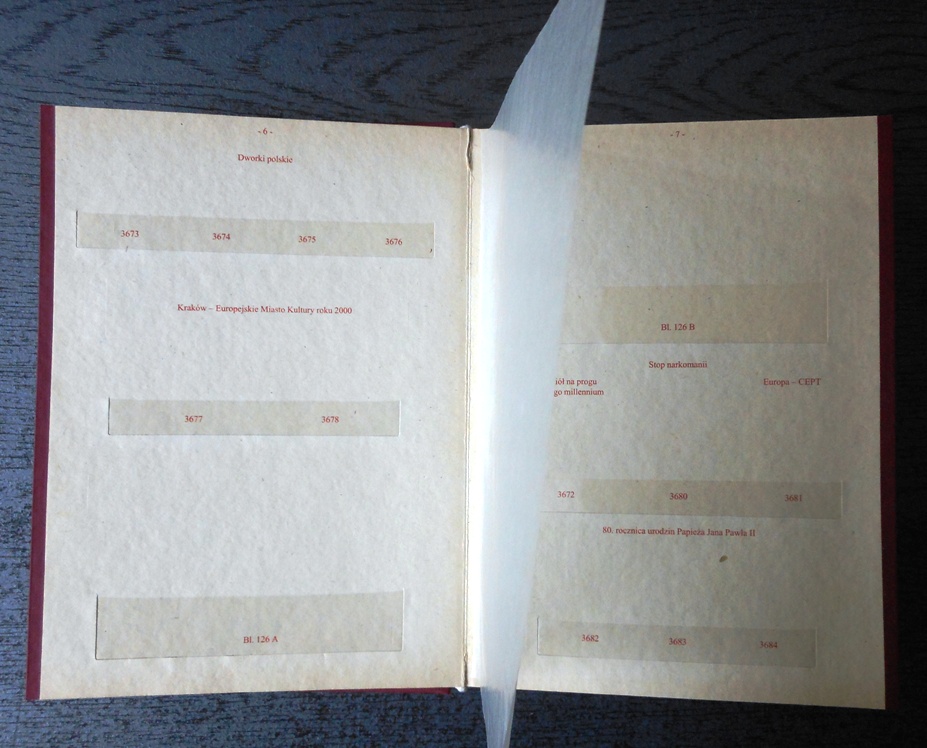 - 6 -
Dworki polskie
3673 3674 3675 3676
Kraków – Europejskie Miasto Kultury roku 2000
3677 3678
Bl. 126 A
- 7 -
Bl. 126 B
Stop narkomanii
na progu Europa – CEPT
millennium
3672 3680 3681
80. rocznica urodzin Papieża Jana Pawła II
3682 3683 3684